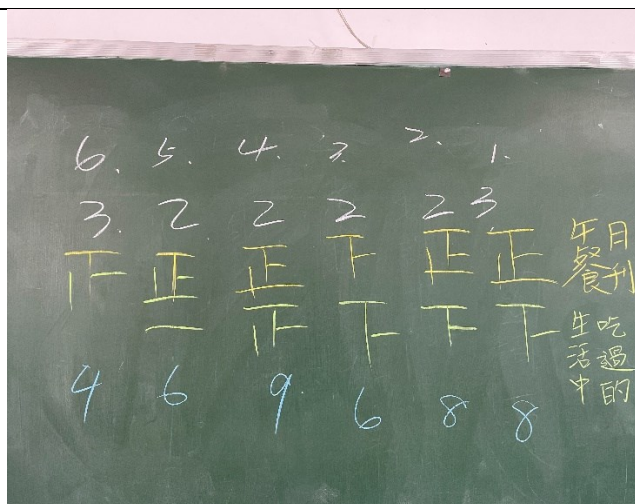 6. 5. 4. 3. 2. 1.
3. 2 2 2 2 3
正 正 下 正 正
一 下 下 下
4 6 9 6 8 8
日刊
午餐
吃過的
生活中